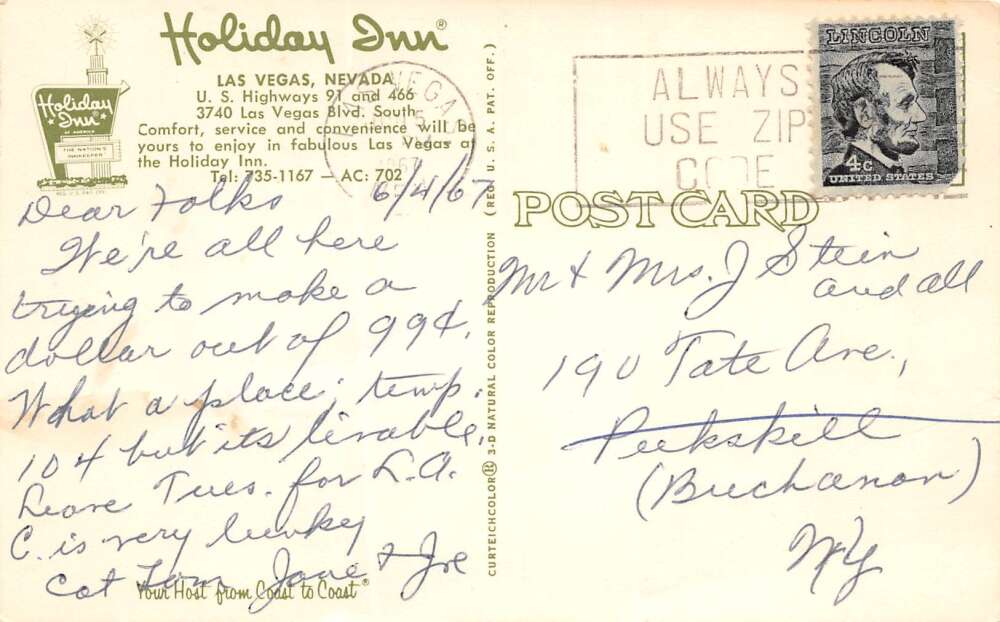 Holiday Inn®
LAS VEGAS, NEVADA
U. S. Highways 91 and 466
3740 Las Vegas Blvd. South
Comfort, service and convenience will be
yours to enjoy in fabulous Las Vegas at
the Holiday Inn.
Tel: 735-1167 — AC: 702
Holiday
Inn
OF AMERICA
THE NATION'S
INNKEEPER
Dear Folks 6/4/67
We're all here
trying to make a
dollar out of 99¢.
What a place; temp.
104 but its livable.
Leave Tues. for L.A.
C. is very lucky
Cat Tom Jane & Joe
Your Host from Coast to Coast®
CURTEICHCOLOR® 3-D NATURAL COLOR REPRODUCTION (REG. U. S. A. PAT. OFF.)
VEGAS
5
1967
ALWAYS
USE ZIP
CODE
LINCOLN
4c
UNITED STATES
POST CARD
Mr & Mrs. J Stein
and all
190 Tate Ave.,
Peekskill
(Buchanan)
NY